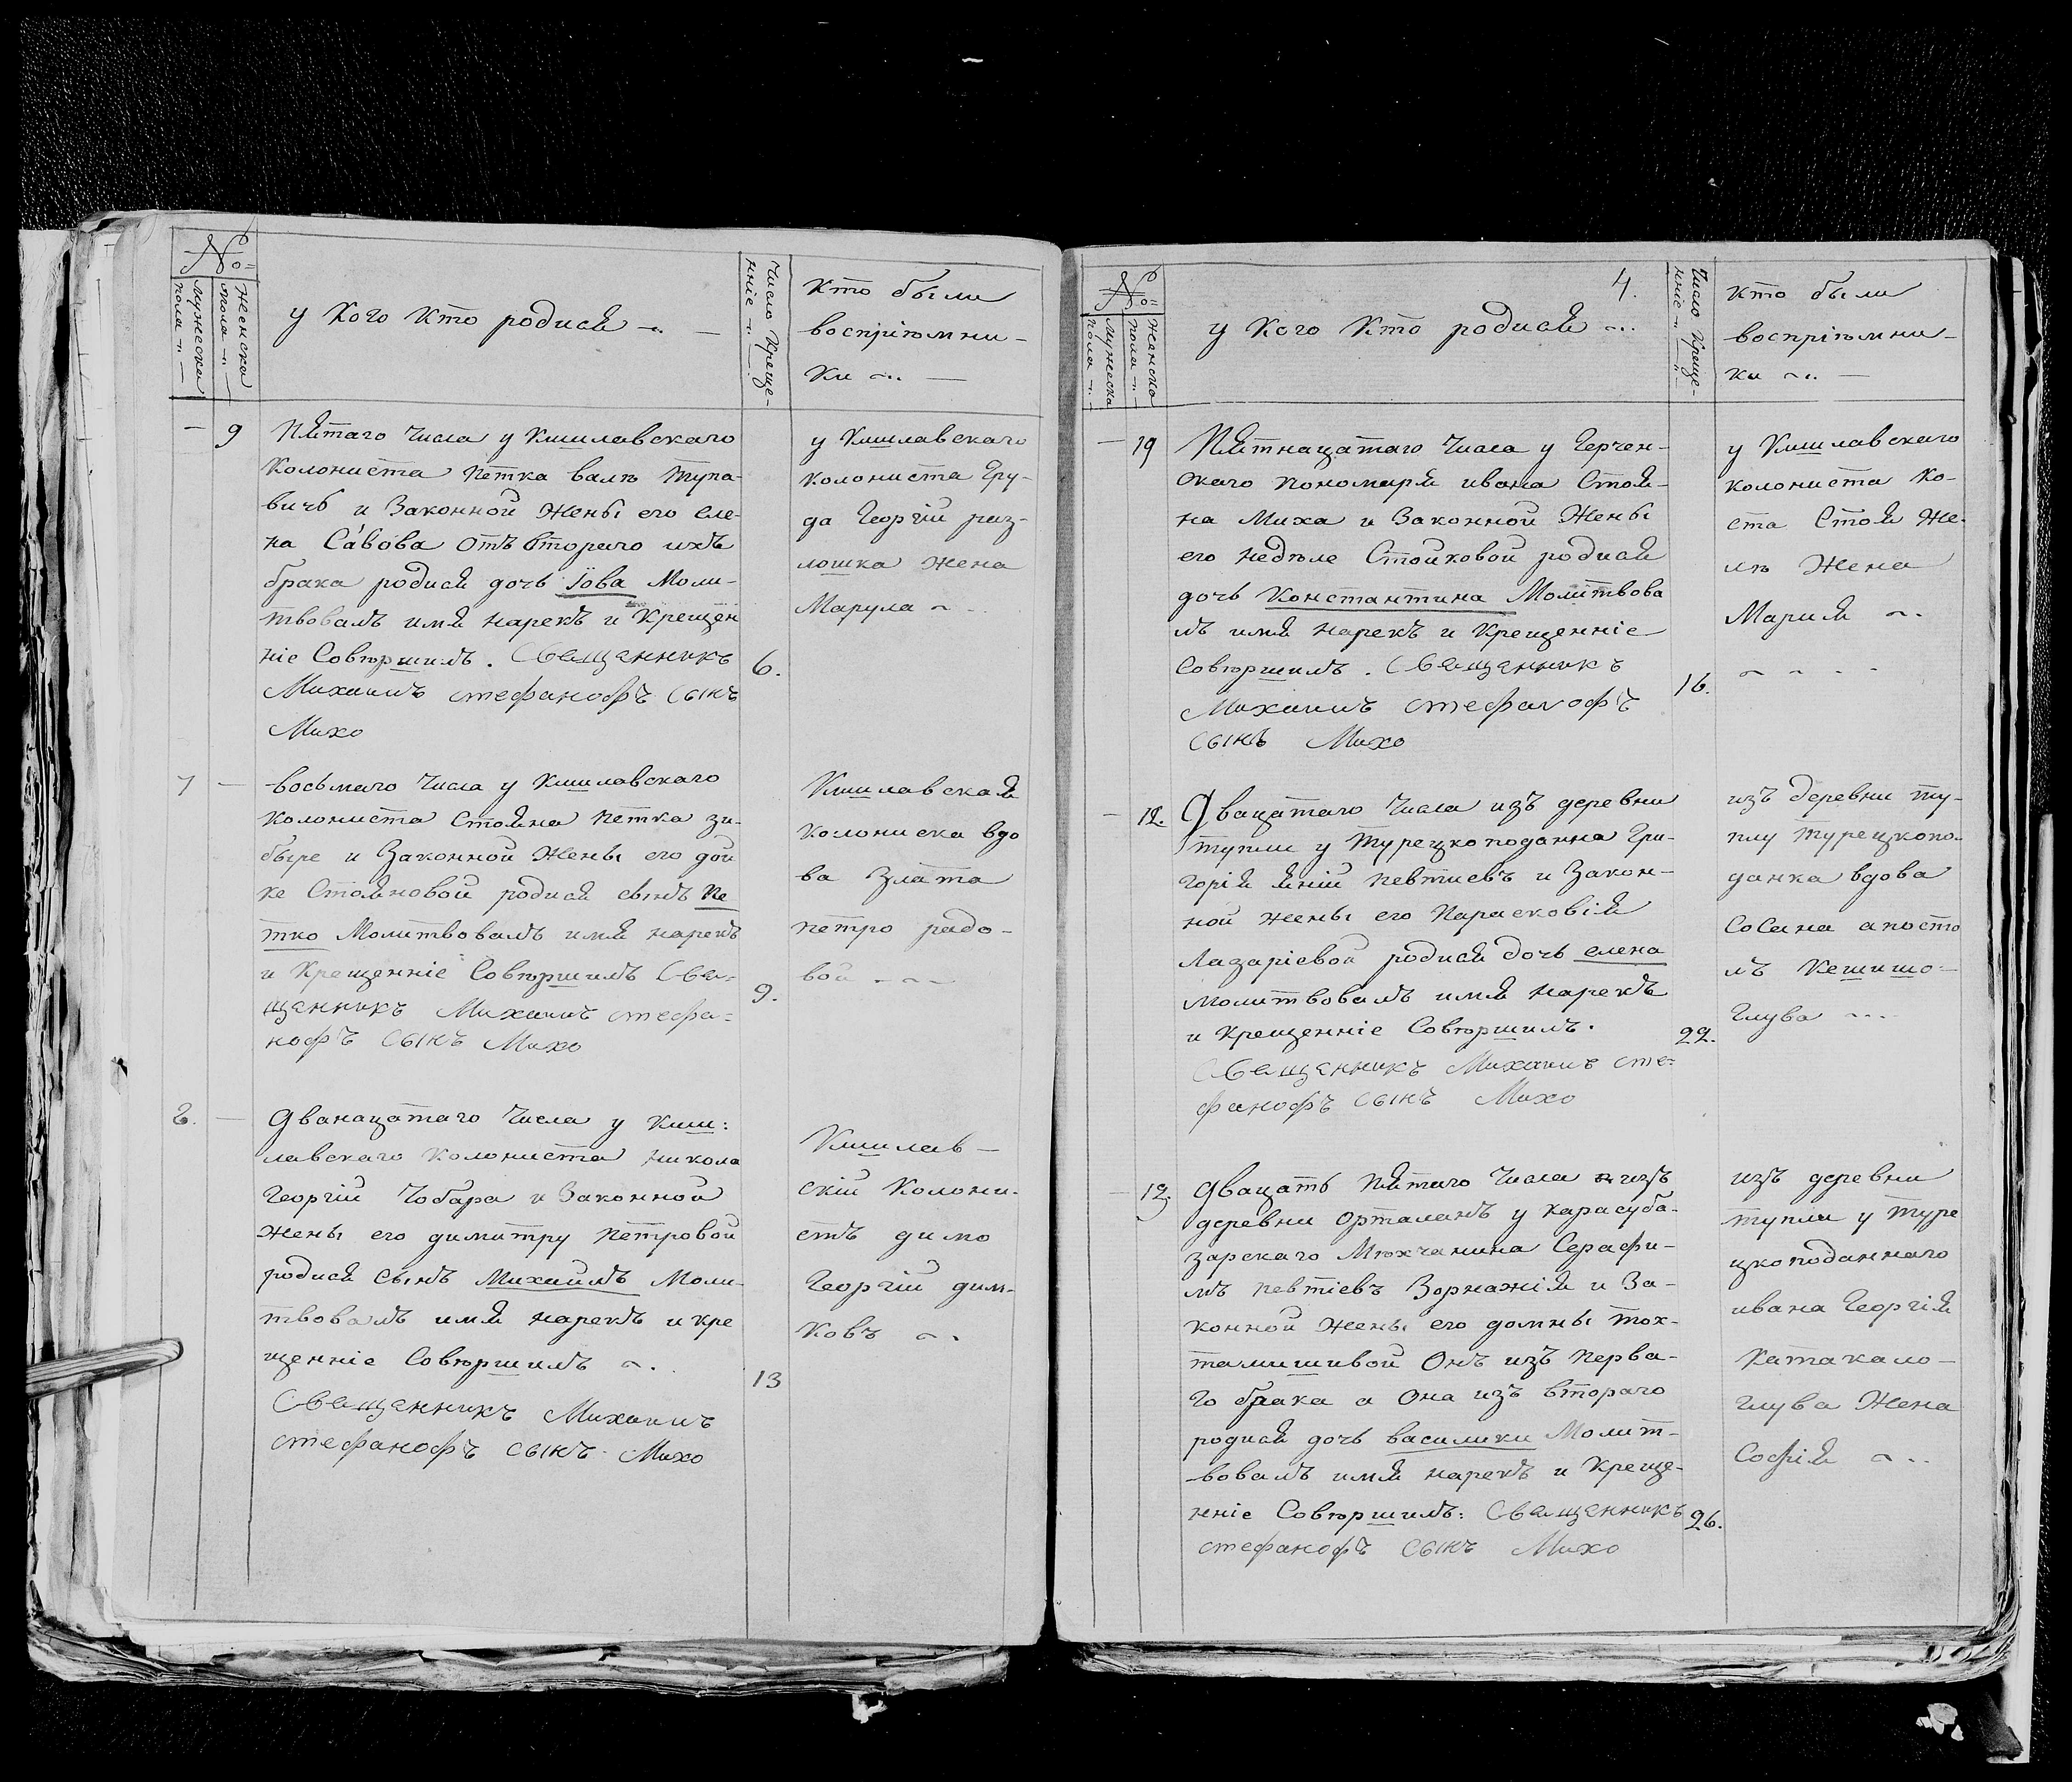 №
Женска пола
мужеска пола
у кого кто родися
Число Креще-
нніе
кто были
воспріѣмни-
ки
9
пятаго Числа у Кишлавскаго
Колониста Петка валѣ Тупа-
вичь и Законной Жены его еле-
на Савова отъ втораго ихъ
брака родися дочь Їова Моли-
твовалъ имя нарекъ и Крещен
ніе Совѣршилъ. Священникъ
Михаилъ стефанофъ сынъ
Михо
6.
у Кишлавскаго
колониста Гру-
да Георгіи раз-
лошка Жена
Марула
7
восьмаго Числа у Кишлавскаго
Колониста Стояна Петка зи-
быре и Законной Жены его дои
ке Стояновой родися сынъ Пе
тко Молитвовалъ имя нарекъ
и Крещенніе Совѣршилъ Свя-
щенникъ Михаилъ стефа-
нофъ сынъ Михо
9.
Кишлавская
колониска вдо
ва Злата
петро радо-
вои
Дванацатаго Числа у Киш:
лавскаго Колониста Никола
Георгіи Чобара и Законной
Жены его димитру Петровой
родися Сынъ Михаилъ Моли-
твовалъ имя нарекъ и кре
щенніе Совѣршилъ
Священникъ Михаилъ
стефанофъ сынъ Михо
13
Кишлав-
скіи Колони-
стъ димо
Георгіи дим-
ковъ
4.
№
Женско пола
мужеска пола
у кого кто родися
Число Креще-
нніе
кто были
воспріѣмни-
ки
Пятнацатаго Числа у Герчен-
скаго пономаря ивана Стоя-
на Миха и Законной Жены
его неделе Стойковой родися
дочь Константина Молитвова
лъ имя нарекъ и Крещенніе
Совѣршилъ. Священникъ
Михаилъ стефанофъ
сынъ Михо
16.
у Кишлавскаго
колониста Ко-
ста Стоя Же-
лѣ Жена
Мария
12.
Двацатаго Числа изъ деревни
тупли у Турецкоподанна Гри-
горія яніи певтиевъ и Закон-
ной Жены его Парасковія
Лазаріевой родися дочь елена
молитвовалъ имя нарекъ
и Крещенніе Совѣршилъ.
Священникъ Михаилъ сте-
фанофъ сынъ Михо
22.
изъ деревни ту-
плу турецкопо-
данка вдова
Сосана апосто
лъ Кешишо-
глува
Двацать пятаго Числа изъ
деревни орталанъ у карасуба-
зарскаго Мѣхчанина Серафи-
мъ певтіевъ Зорнажія и За-
конной Жены его домны тох-
тамишивой Онъ изъ перва-
го брака а Она изъ втораго
родися дочь василики Молит-
вовалъ имя нарекъ и Креще-
нніе Совѣршилъ: Священникъ
стефанофъ сынъ Михо
26.
изъ деревни
тупли у туре
цкоподаннаго
ивана Георгія
Катакало-
глува Жена
Софія